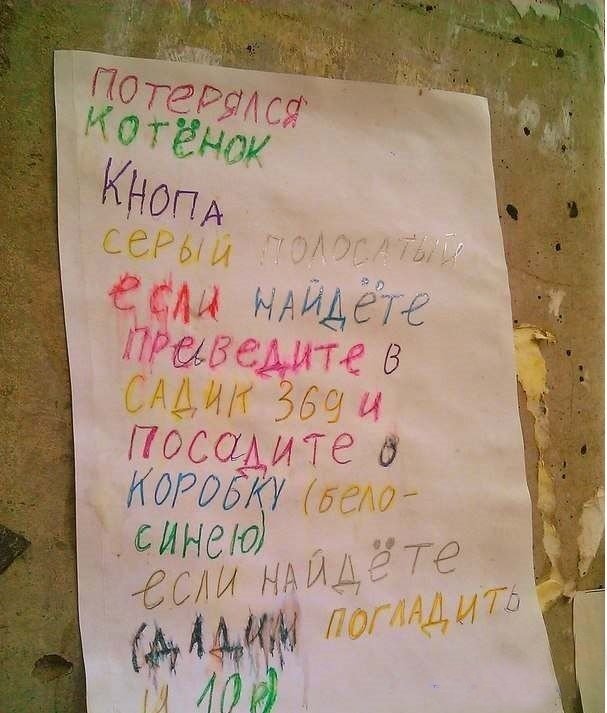 ПОТЕРЯЛСЯ
КОТЁНОК
КНОПА
СЕРЫЙ ПОЛОСАТЫЙ
если НАЙДЁТЕ
ПРЕВЕДИТЕ В
САДИК 369 и
ПОСАДИТЕ В
КОРОБКУ (бело-
синею)
если НАЙДЁТЕ
ДАДИМ ПОГЛАДИТЬ
И 10р